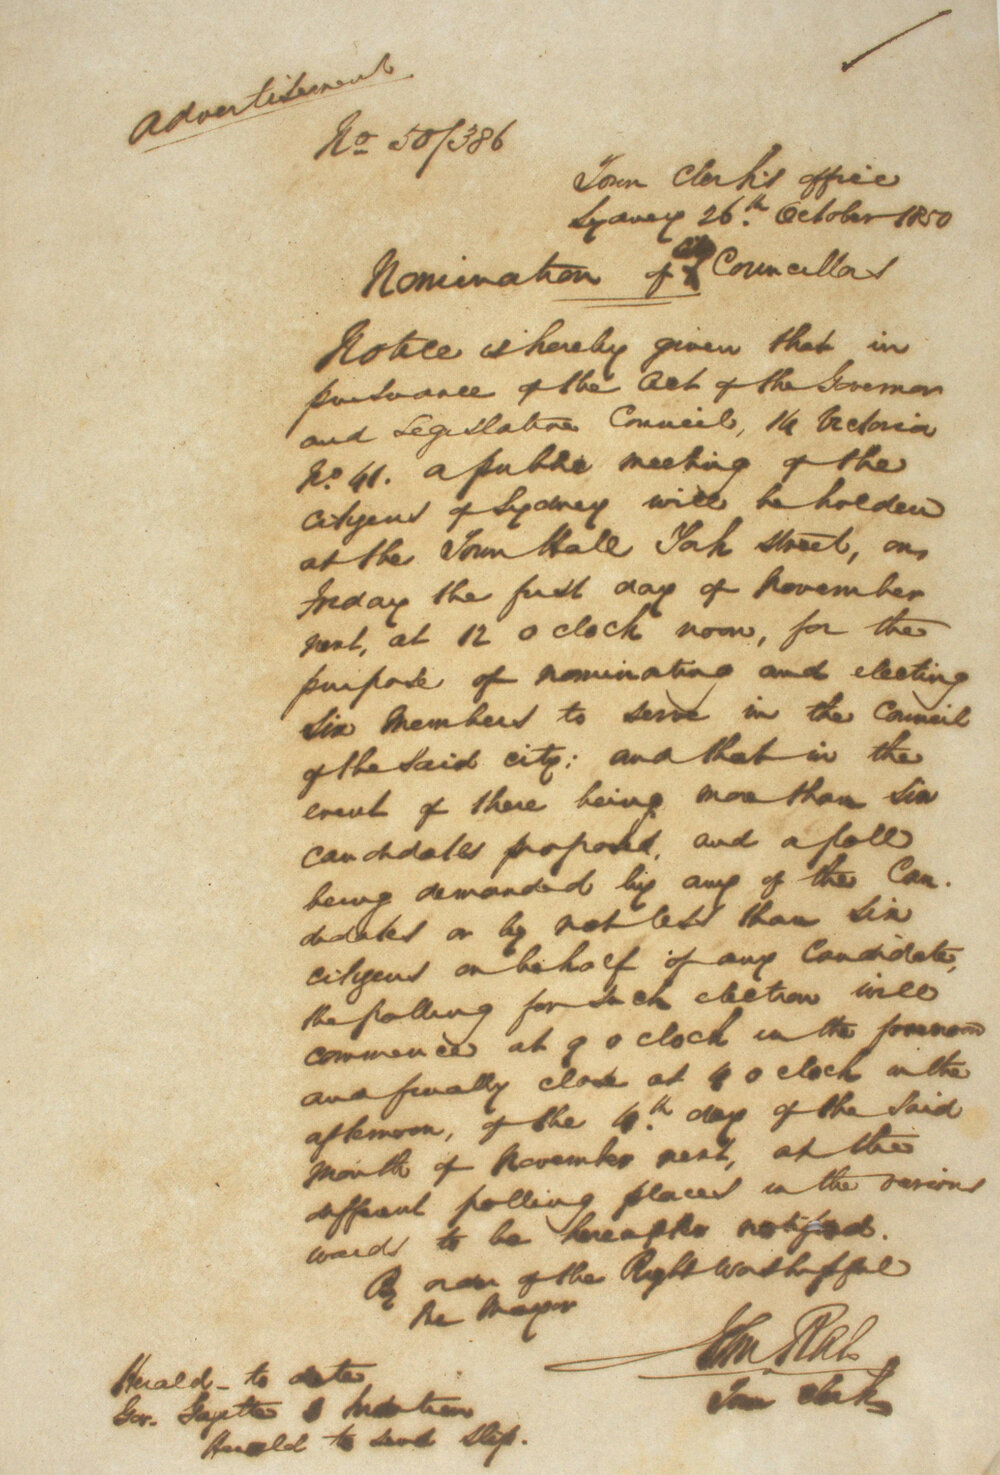 Advertisement
No 50/386
Town Clerk's office
Sydney 26th October 1850
Nomination of City Councillors
Notice is hereby given that in
pursuance of the Act of the Governor
and Legislative Council, 14 Victoria
No. 41. a public meeting of the
citizens of Sydney will be holden
at the Town Hall York street, on
Friday the first day of November
next, at 12 o clock noon, for the
purpose of nominating and electing
six Members to serve in the Council
of the said city; and that in the
event of there being more than six
candidates proposed, and a poll
being demanded by any of the Can-
didates or by not less than six
citizens on behalf of any Candidate,
the polling for such election will
commence at 9 o clock in the forenoon
and finally close at 4 o clock in the
afternoon, of the 4th day of the said
month of November next, at the
different polling places in the various
wards to be hereafter notified.
By order of the Right Worshipful
the Mayor
Town Clerk
Herald - to date
Gov. Gazette
Herald to send slip.